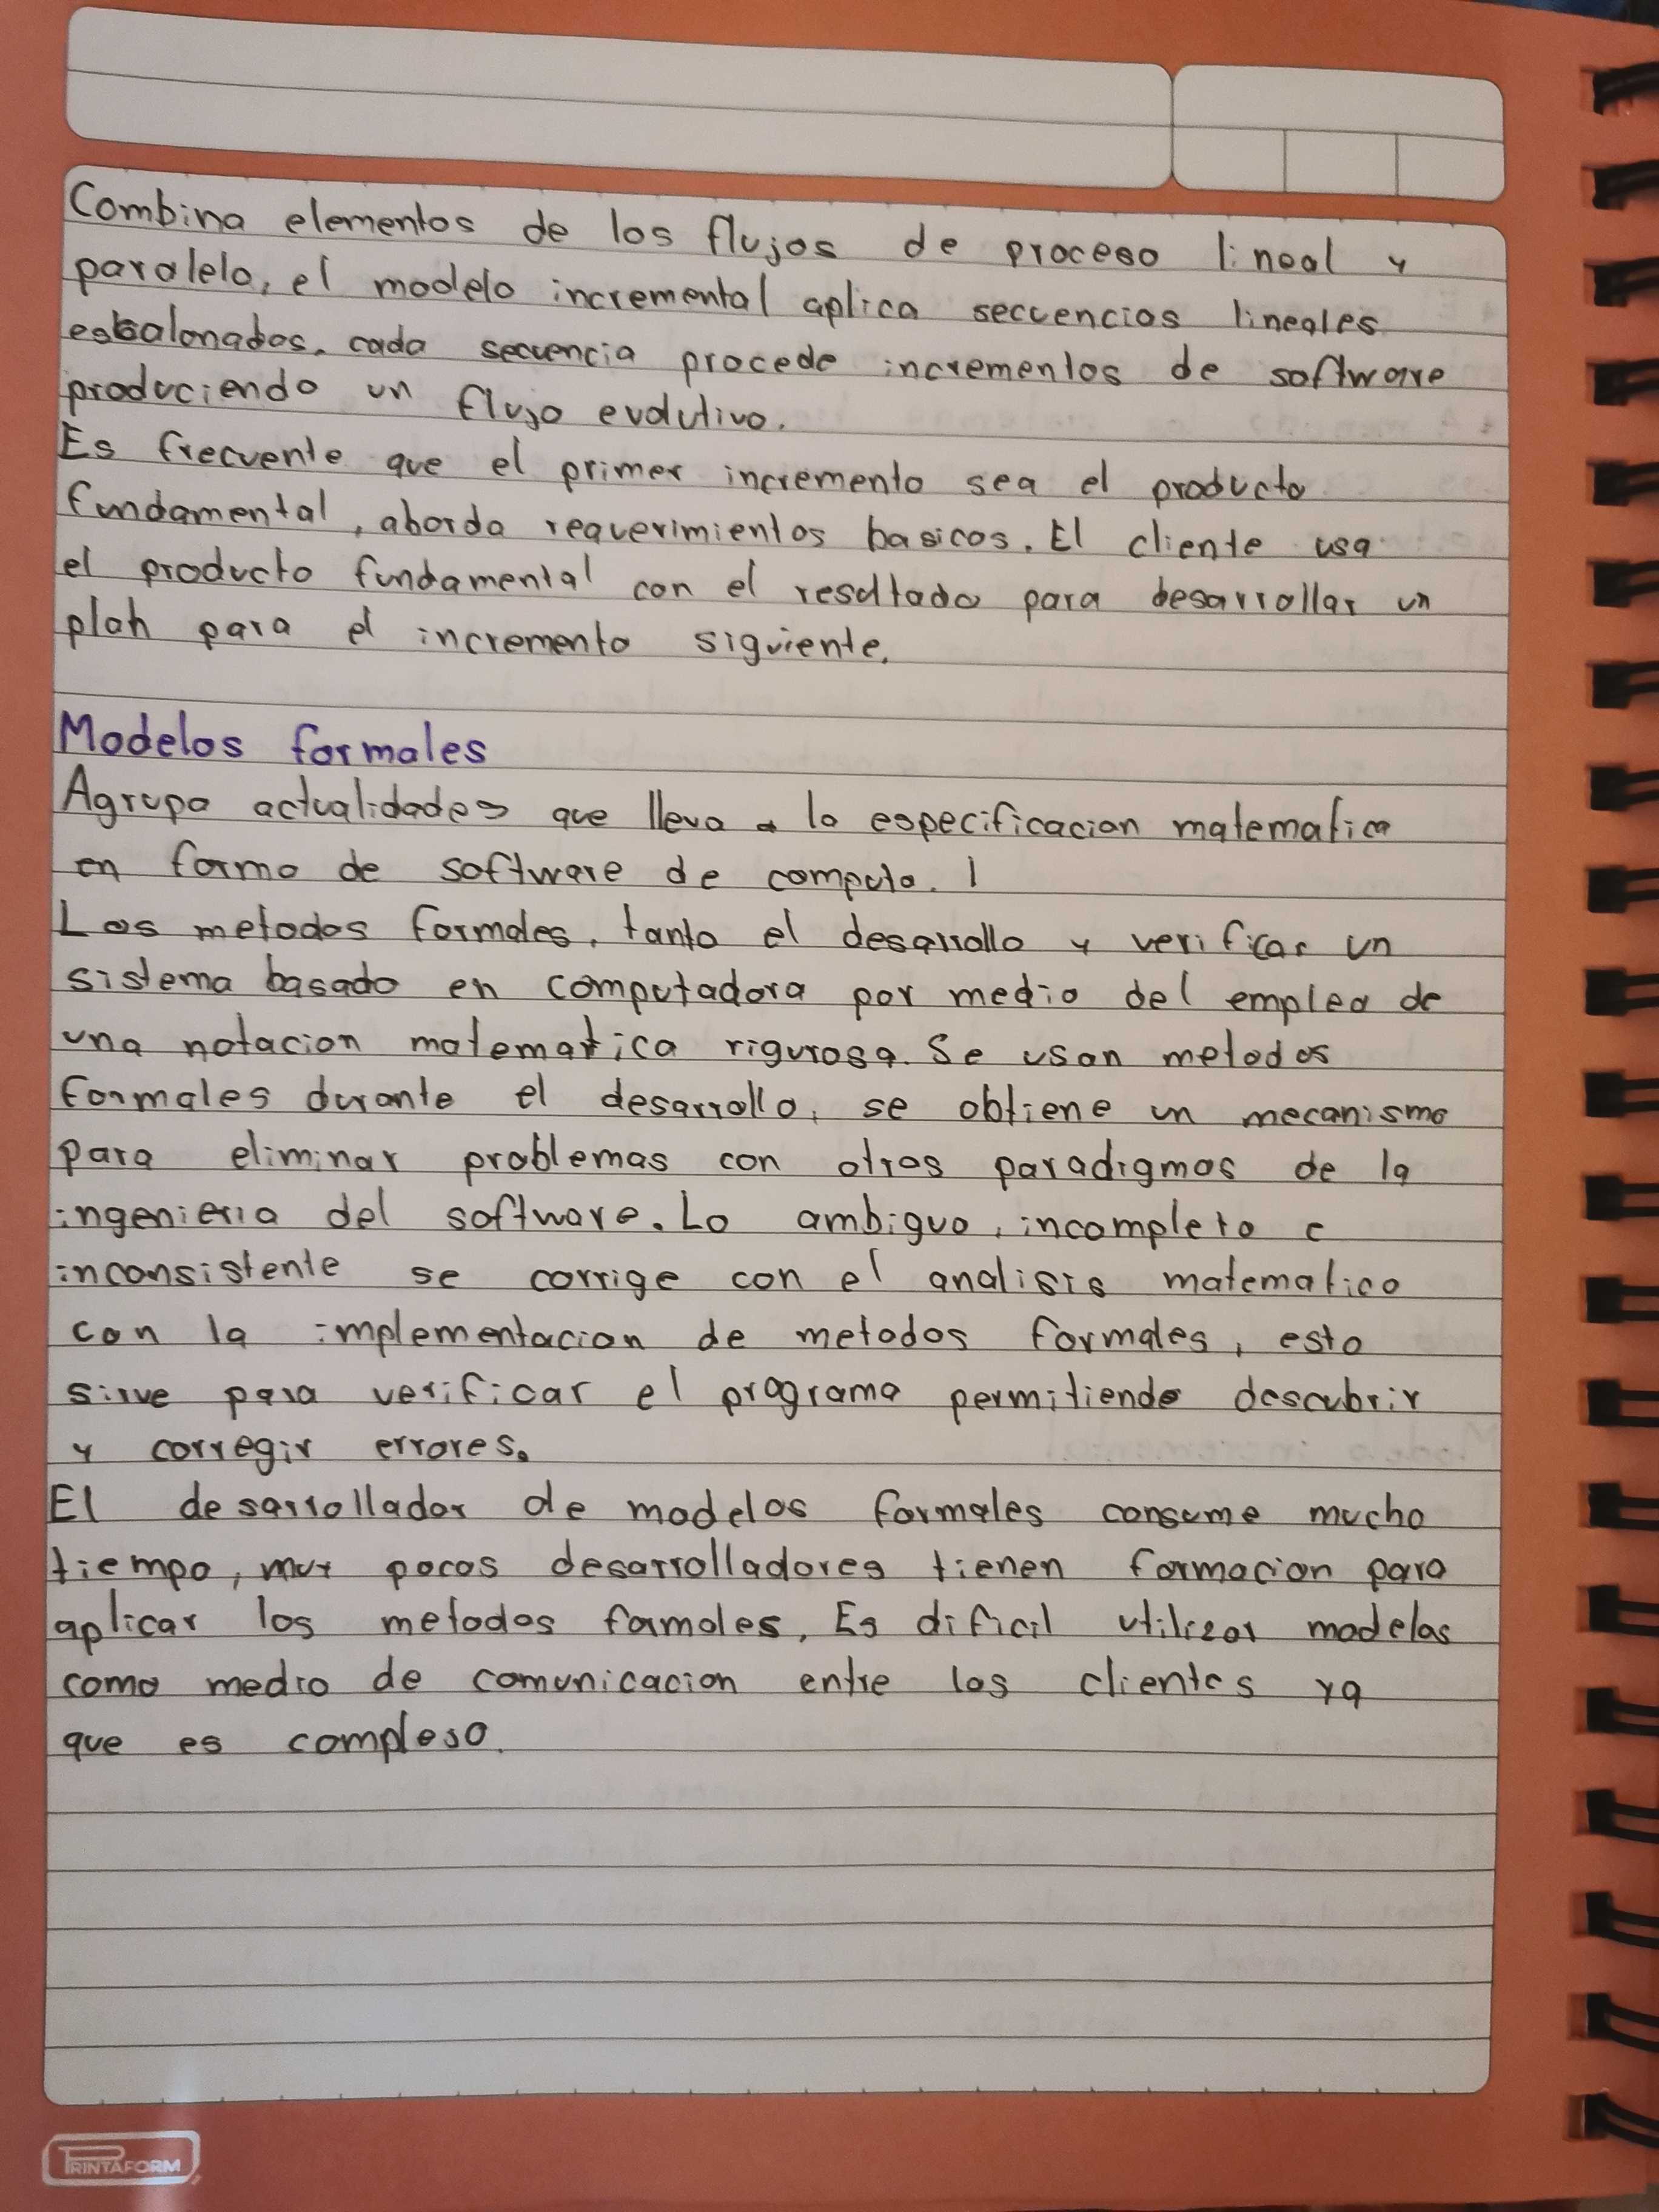 Combina elementos de los flujos de proceso lineal y
paralelo, el modelo incremental aplica secuencias lineales
escalonados. cada secuencia procede incrementos de software
produciendo un flujo evolutivo.
Es frecuente que el primer incremento sea el producto
fundamental, aborda requerimientos basicos. El cliente usa
el producto fundamental con el resultado para desarrollar un
plan para el incremento siguiente.
Modelos formales
Agrupa actualidades que lleva a la especificacion matematica
en forma de software de computo.
Los metodos formales, tanto el desarrollo y verificar un
sistema basado en computadora por medio del empleo de
una notacion matematica rigurosa. Se usan metodos
formales durante el desarrollo, se obtiene un mecanismo
para eliminar problemas con otros paradigmas de la
ingenieria del software. Lo ambiguo, incompleto e
inconsistente se corrige con el analisis matematico
con la implementacion de metodos formales, esto
sirve para verificar el programa permitiendo descubrir
y corregir errores.
El desarrollador de modelos formales consume mucho
tiempo, muy pocos desarrolladores tienen formacion para
aplicar los metodos formales, Es dificil utilizar modelos
como medio de comunicacion entre los clientes ya
que es complejo.
PRINTAFORM